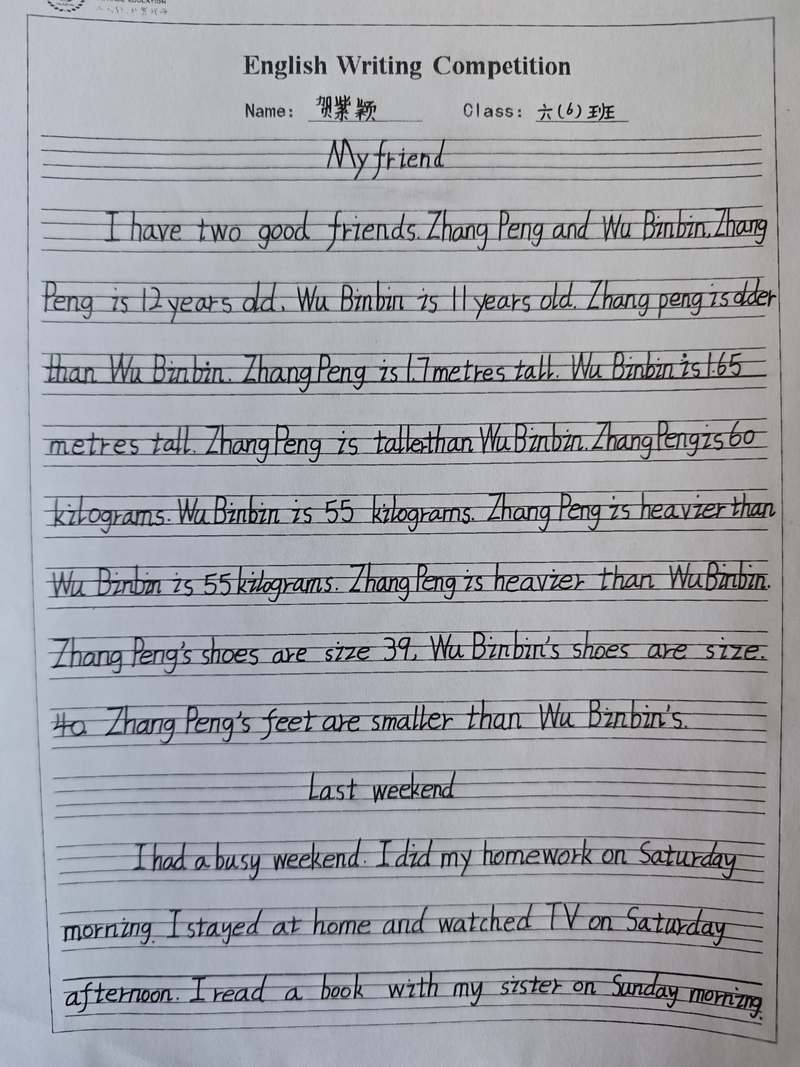 English Writing Competition
Name: 贺紫颖 Class: 六(6)班
My friend
I have two good friends. Zhang Peng and Wu Binbin. Zhang
Peng is 12 years old. Wu Binbin is 11 years old. Zhang peng is older
than Wu Binbin. Zhang Peng is 1.7 metres tall. Wu Binbin is 1.65
metres tall. Zhang Peng is taller than Wu Binbin. Zhang Peng is 60
kilograms. Wu Binbin is 55 kilograms. Zhang Peng is heavier than
Wu Binbin is 55 kilograms. Zhang Peng is heavier than Wu Binbin.
Zhang Peng's shoes are size 39. Wu Binbin's shoes are size.
40 Zhang Peng's feet are smaller than Wu Binbin's.
Last weekend
I had a busy weekend. I did my homework on Saturday
morning. I stayed at home and watched TV on Saturday
afternoon. I read a book with my sister on Sunday morning.